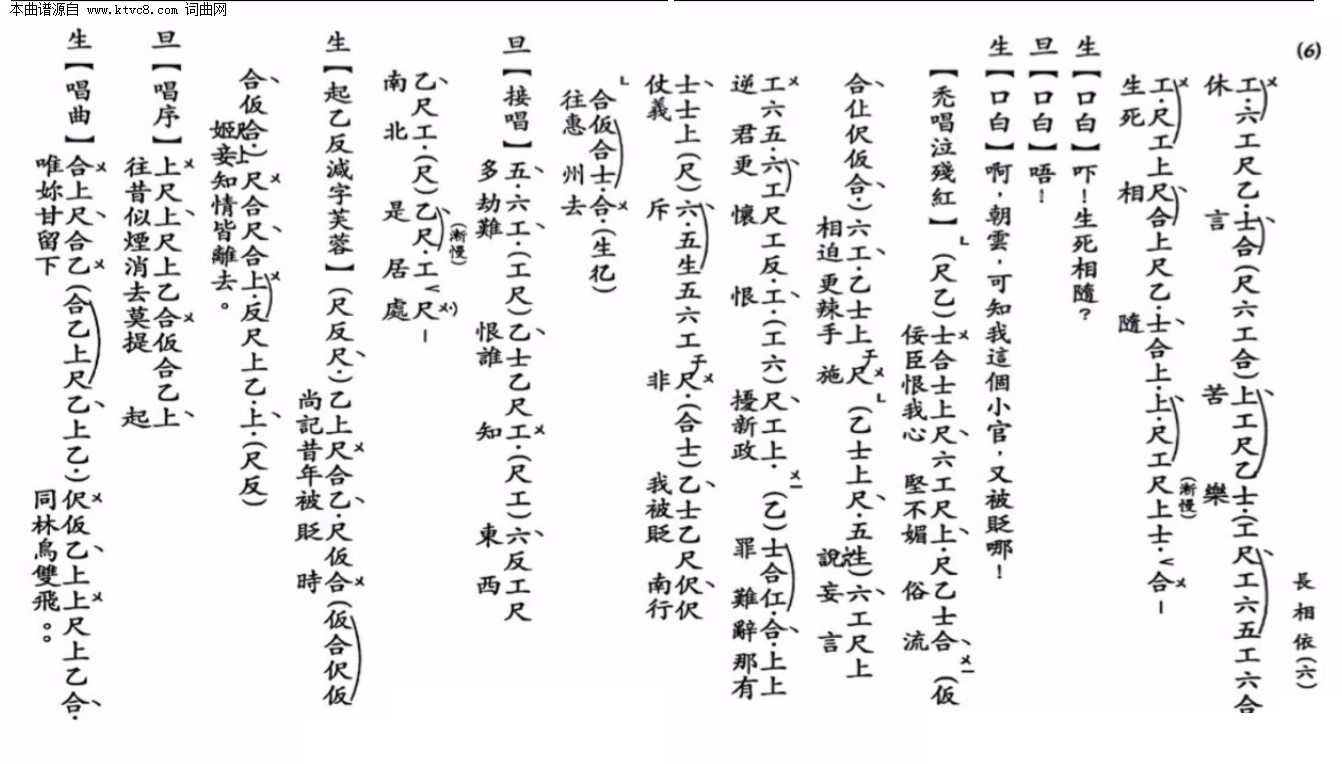 本曲谱源自 www.ktvc8.com 词曲网
(6)
長相依(六)
工．六工尺乙．士合(尺六工合)上工尺乙士．(工尺工六五工六合
休言苦樂
工．尺工上尺合上尺乙．士合上．上．尺工尺上士．合—
(漸慢)
生死相隨
生【口白】吓！生死相隨？
旦【口白】唔！
生【口白】啊，朝雲，可知我這個小官，又被貶哪！
【禿唱泣殘紅】(尺乙)士合士上尺六工尺上．尺乙士合(仮
佞臣恨我心堅不媚俗流
合仩伬仮合．)六工．乙士上尺(乙士上尺．五生)六工尺上
相迫更辣手施說妄言
工六五．六工尺工反．工．(工六)尺工上．(乙)士合仜．合．上上
逆君更懷恨擾新政罪難辭那有
士士上(尺)六．五生五六工尺．(合士)乙士乙尺伬伬
仗義斥非我被貶南行
合仮合士．合．(生圪)
往惠州去
旦【接唱】五．六工．(工尺)乙士乙尺工．(尺工)六反工尺
多劫難恨誰知東西
乙尺工．(尺)乙尺．工尺—
(漸慢)
南北是居處
生【起乙反減字芙蓉】(尺反尺．)乙上尺合乙．尺仮合(仮合伬仮
尚記昔年被貶時
合仮合．)尺合尺合上．反尺上乙．上．(尺反)
姬妾知情皆離去。
旦【唱序】上尺上尺上乙合仮合乙上
往昔似煙消去莫提起
生【唱曲】合上尺合乙(合乙上尺乙上乙．)伬仮乙上上尺上乙合．
唯妳甘留下同林鳥雙飛。。